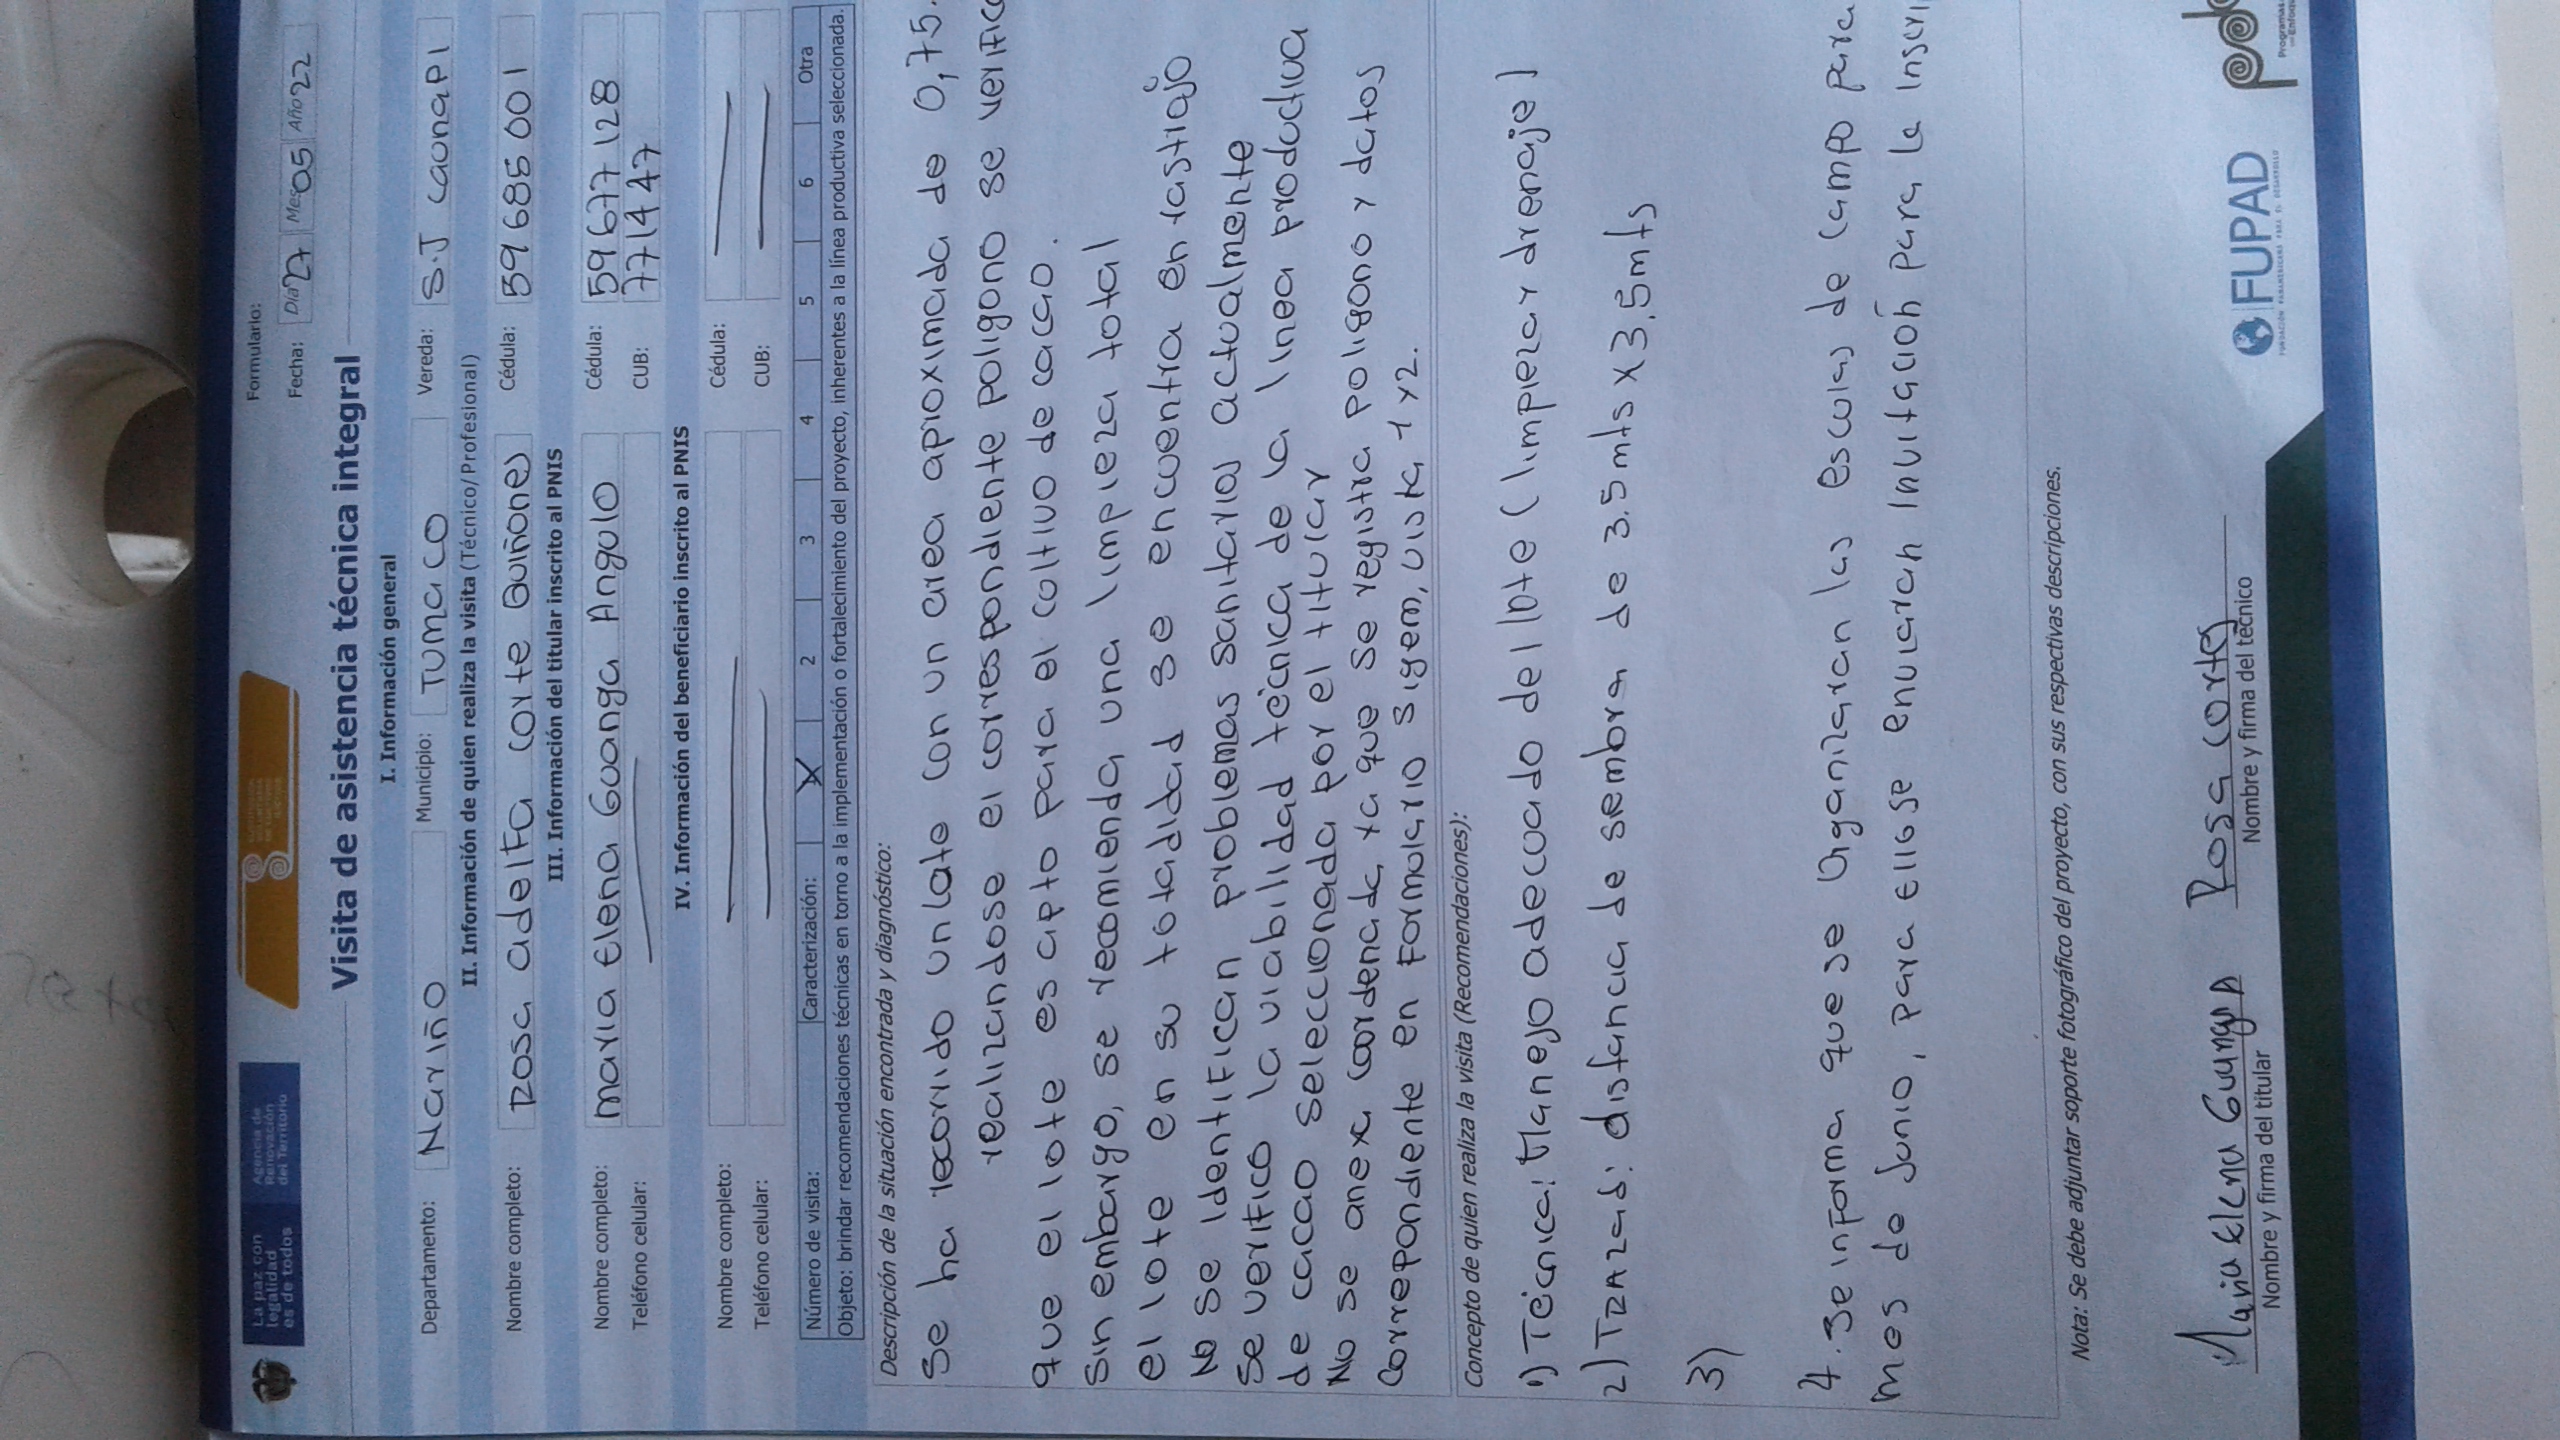 La paz con
legalidad
es de todos
Agencia de
Renovación
del Territorio
Formulario:
Fecha: Día 27 Mes 05 Año 22
Visita de asistencia técnica integral
I. Información general
Departamento: Nariño Municipio: Tumaco Vereda: S.J caonapi
II. Información de quien realiza la visita (Técnico/Profesional)
Nombre completo: Rosa adelfa corte Quiñones Cédula: 59685001
III. Información del titular inscrito al PNIS
Nombre completo: maria Elena Guanga Angulo Cédula: 59677128
Teléfono celular: CUB: 771447
IV. Información del beneficiario inscrito al PNIS
Nombre completo: Cédula:
Teléfono celular: CUB:
Número de visita: Caracterización: X 2 3 4 5 6 Otra
Objeto: brindar recomendaciones técnicas en torno a la implementación o fortalecimiento del proyecto, inherentes a la línea productiva seleccionada.
Descripción de la situación encontrada y diagnóstico:
Se ha recorrido un lote con un area aproximada de 0,75.
realizandose el correspondiente poligono se verific
que el lote es apto para el coltivo de cacao.
Sin embargo, se recomienda una limpieza total
el lote en su totadidad se encuentra en rastrojo
No se identifican problemas sanitarios actualmente
Se verifico la viabilidad técnica de la linea productiva
de cacao seleccionada por el titular
No se anexa cordenada, ya que se registra poligono y datos
Correpondiente en formulario sigem, vista 1 y 2.
Concepto de quien realiza la visita (Recomendaciones):
1) Técnica: Manejo adecuado del lote (limpieza y drenaje)
2) Trazad: distancia de sembra de 3.5mts x 3.5mts
3)
4. Se informa que se Organizaran las escula de campo para
mes de Junio, para ello se enviaran Invitación para la Inscri
Nota: Se debe adjuntar soporte fotográfico del proyecto, con sus respectivas descripciones.
Maria Elena Guanga A Rosa Cortes
Nombre y firma del titular Nombre y firma del técnico
FUPAD
FUNDACIÓN PANAMERICANA PARA EL DESARROLLO
Programas